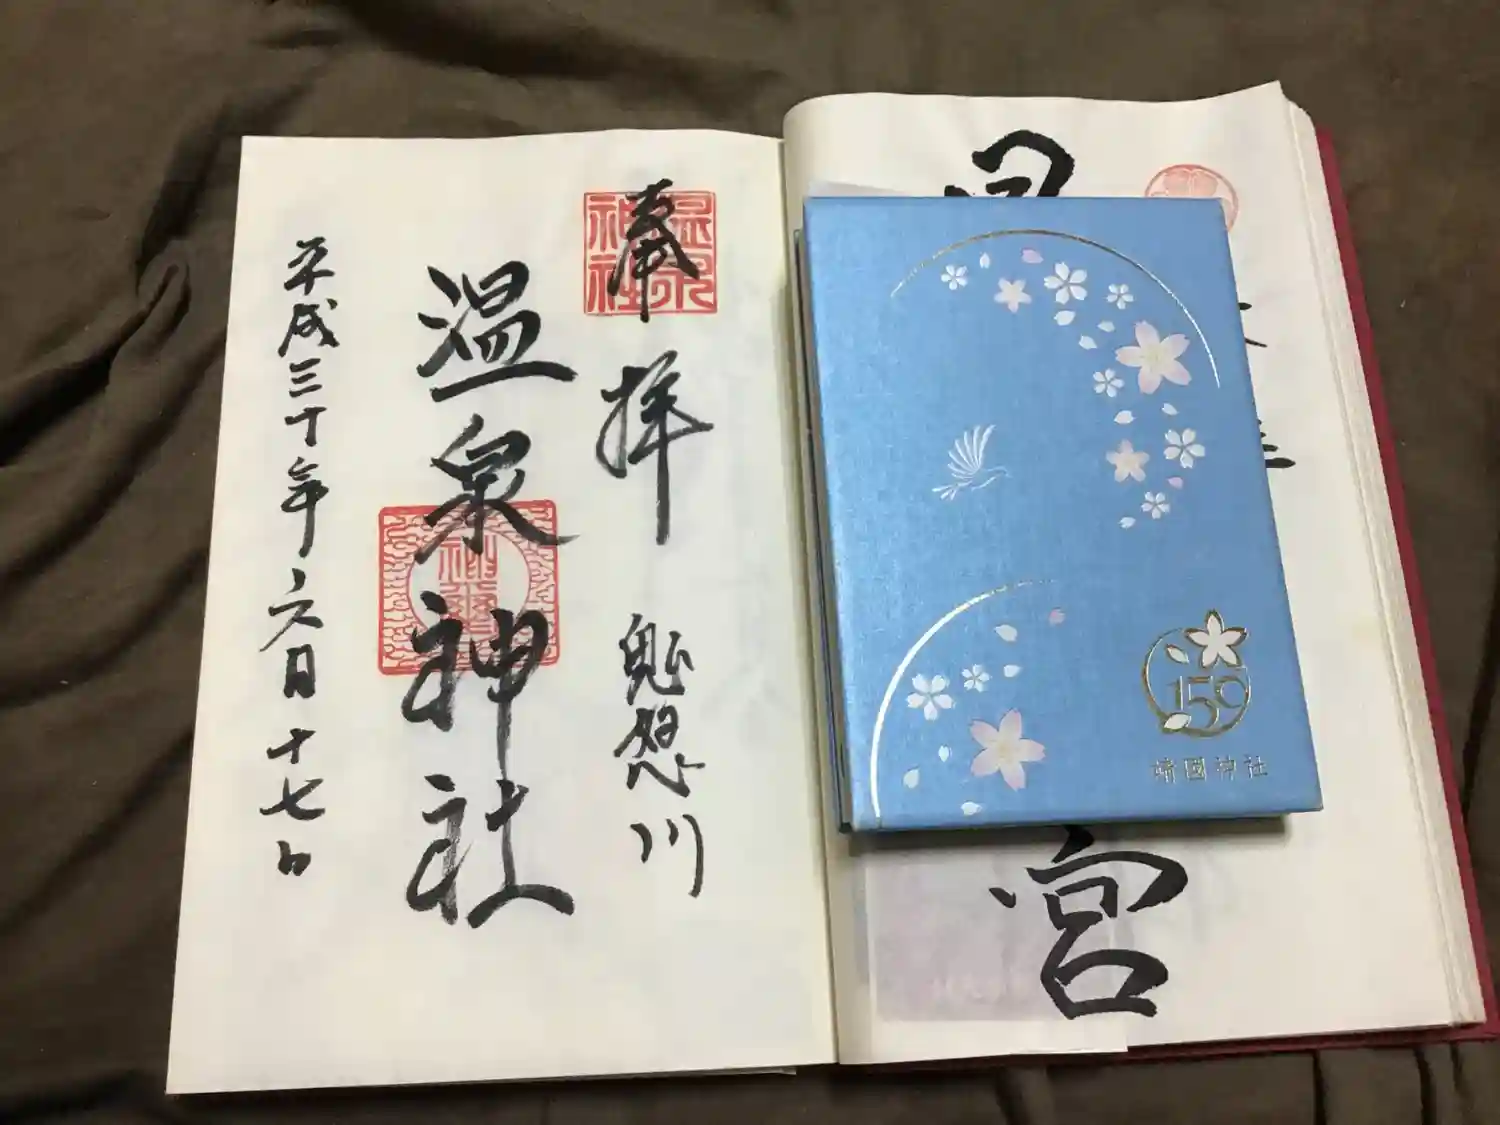 宮
150
靖國神社
奉拝 鬼怒川
温泉神社
温泉神社
平成三十年六月十七日